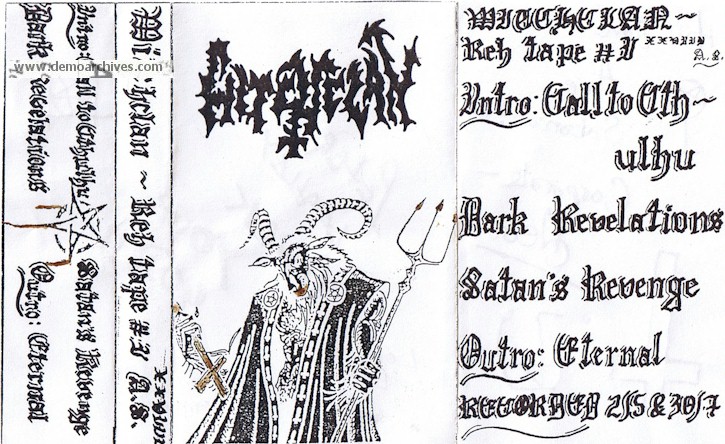 www.demoarchives.com
Intro: Call to Cthulhu
Dark Revelations
Satan's Revenge
Outro: Eternal
Witchclan ~ Reh tape #I
A.S.
WITCHCLAN
WITCHCLAN ~
Reh tape #I
A.S.
Intro: Call to Cth~
ulhu
Dark Revelations
Satan's Revenge
Outro: Eternal
RECORDED 2/5 & 30/7